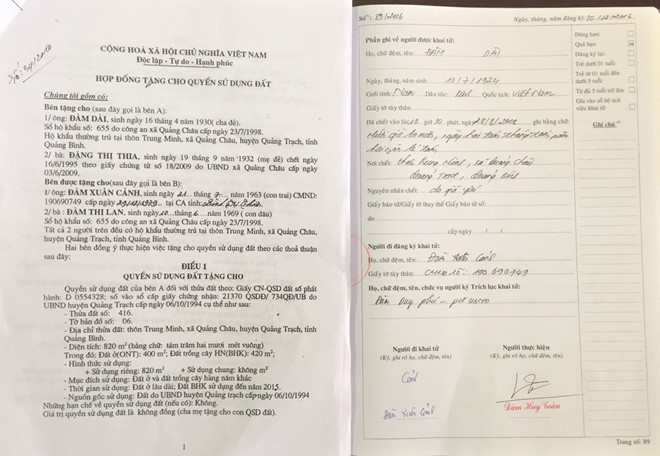 CỘNG HOÀ XÃ HỘI CHỦ NGHĨA VIỆT NAM
Độc lập - Tự do - Hạnh phúc
HỢP ĐỒNG TẶNG CHO QUYỀN SỬ DỤNG ĐẤT
Chúng tôi gồm có:
Bên tặng cho (sau đây gọi là bên A):
1/ ông: ĐÀM DÀI, sinh ngày 16 tháng 4 năm 1930( cha đẻ).
Số hộ khẩu số: 655 do công an xã Quảng Châu cấp ngày 23/7/1998.
Hộ khẩu thường trú tại thôn Trung Minh, xã Quảng Châu, huyện Quảng Trạch, tỉnh
Quảng Bình.
2/ bà: ĐẶNG THỊ THIA, sinh ngày 19 tháng 9 năm 1932 (mẹ đẻ) chết ngày
16/6/1995 theo giấy chứng tử số 18/2009 do UBND xã Quảng Châu cấp ngày
03/6/2009.
Bên được tặng cho(sau đây gọi là bên B):
1/ ông: ĐÀM XUÂN CẢNH, sinh ngày 21 tháng 7 năm 1963 (con trai) CMND:
190690749 cấp ngày tại CA tỉnh:
2/ bà : ĐÀM THỊ LAN, sinh ngày 10 tháng 6 năm 1969 ( con dâu)
Số hộ khẩu số: 655 do công an xã Quảng Châu cấp ngày 23/7/1998.
Tất cả 2 người trên đều có hộ khẩu thường trú tại thôn Trung Minh, xã Quảng Châu,
huyện Quảng Trạch, tỉnh Quảng Bình.
Hai bên đồng ý thực hiện việc tặng cho quyền sử dụng đất theo các thoả thuận
sau đây:
ĐIỀU 1
QUYỀN SỬ DỤNG ĐẤT TẶNG CHO
Quyền sử dụng đất của bên A đối với thửa đất theo: Giấy CN-QSD đất số phát
hành: D 0554328; số vào sổ cấp giấy chứng nhận: 21370 QSDĐ/ 734QĐ/UB do
UBND huyện Quảng Trạch cấp ngày 06/10/1994 cụ thể như sau:
- Thửa đất số: 416.
- Tờ bản đồ số: 06.
- Địa chỉ thửa đất: thôn Trung Minh, xã Quảng Châu, huyện Quảng Trạch, tỉnh
Quảng Bình.
- Diện tích: 820 m² (bằng chữ: tám trăm hai mươi mét vuông)
Trong đó: Đất ở(ONT): 400 m²; Đất trồng cây HN(BHK): 420 m²;
- Hình thức sử dụng:
+ Sử dụng riêng: 820 m² + Sử dụng chung: không m²
- Mục đích sử dụng: Đất ở và đất trồng cây hàng năm khác
- Thời gian sử dụng: Đất ở lâu dài; Đất BHK sử dụng đến năm 2015.
- Nguồn gốc sử dụng: Đất do UBND huyện Quảng Trạch cấp ngày 06/10/1994
Những hạn chế về quyền sử dụng đất (nếu có): Không.
Giá trị quyền sử dụng đất là không đồng (cha mẹ tặng cho con QSD đất).
1
Số: 89/2016
Ngày, tháng, năm đăng ký
Phần ghi về người được khai tử:
Họ, chữ đệm, tên: ĐÀM DÀI
Ngày, tháng, năm sinh: 10/7/1924
Giới tính: Nam Dân tộc: Kinh Quốc tịch: Việt Nam
Giấy tờ tùy thân:
Đã chết vào lúc 10 giờ 30 phút, ngày ghi bằng chữ
Nơi chết:
Nguyên nhân chết: do già yếu
Giấy báo tử/Giấy tờ thay thế Giấy báo tử số:
do
cấp ngày / /
Người đi đăng ký khai tử:
Họ, chữ đệm, tên: Đàm Xuân Cảnh
Giấy tờ tùy thân: CMND số: 190 690 749
Họ, chữ đệm, tên, chức vụ người ký Trích lục khai tử:
Người đi khai tử
(Ký, ghi rõ họ, chữ đệm, tên)
Cảnh
Đàm Xuân Cảnh
Người thực hiện
(Ký, ghi rõ họ, chữ đệm, tên)
Đàm Huy Toàn
Đúng hạn:
Quá hạn:
Đăng ký lại:
Trẻ dưới 01 tuổi:
Trẻ từ 01 tuổi đến
dưới 5 tuổi:
Từ đủ 5 tuổi trở lên:
Ghi vào sổ hộ tịch
việc khai tử:
Ghi chú
Trang số: 89